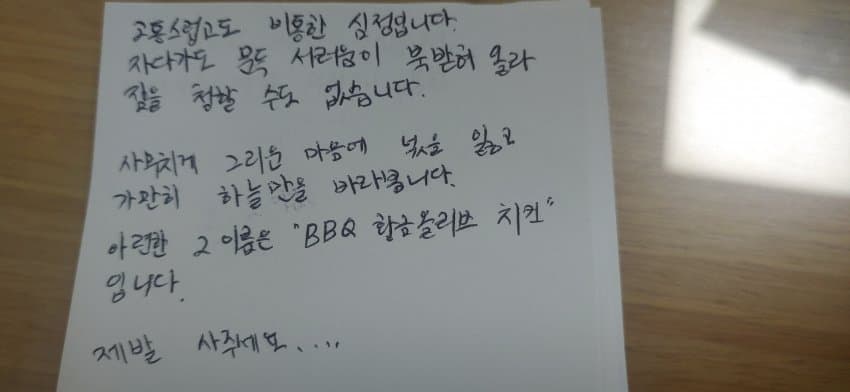 고통스럽고도 비통한 심정입니다.
자다가도 문득 서러움이 북받혀 올라
잠을 청할 수도 없습니다.
사무치게 그리운 마음에 넋을 잃고
가만히 하늘만을 바라봅니다.
아련한 그 이름은 "BBQ 황금올리브 치킨"
입니다.
제발 사주세요.....